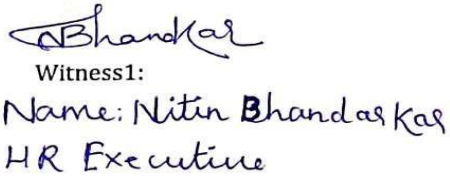 NBhandkar
Witness1:
Name: Nitin Bhandarkar
HR Executive